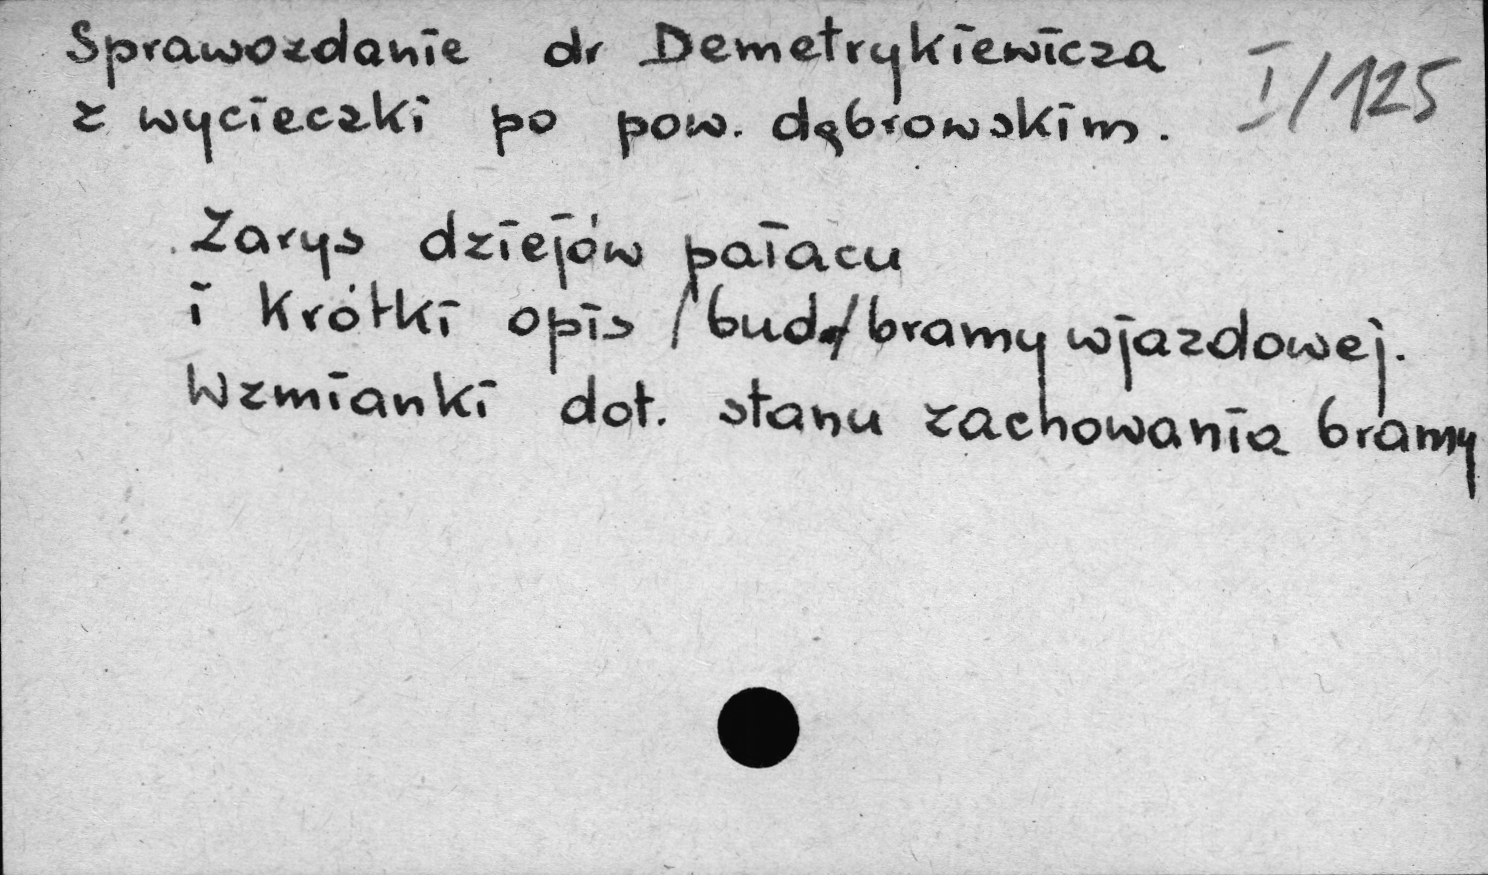 Sprawozdanie dr Demetrykiewicza I/125
z wycieczki po pow. dąbrowskim.
Zarys dziejów pałacu
i krótki opis /bud./ bramy wjazdowej.
Wzmianki dot. stanu zachowania bramy